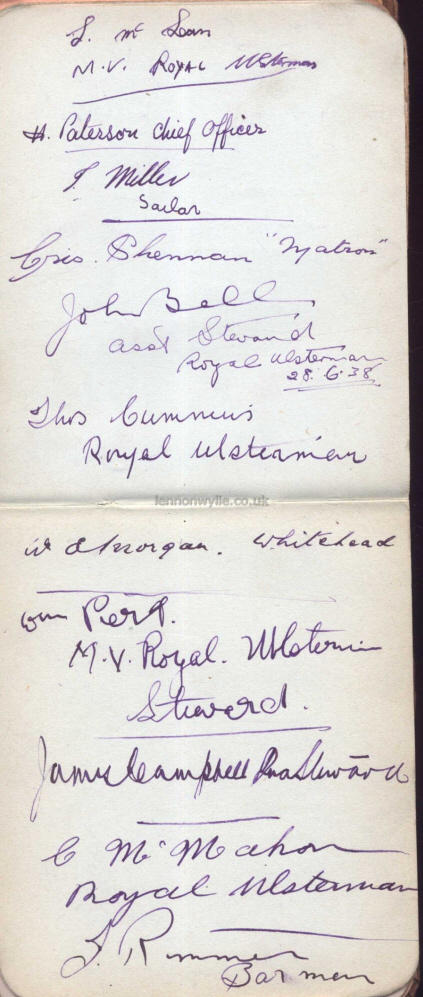 Mc Lean
M.V. Royal Ulsterman
H. Paterson Chief Officer
T Miller
Sailor
Cris. Shennan "Matron"
John Bell
asst Steward
Royal Ulsterman
28.6.38
Thos Cummins
Royal Ulsterman
lennonwylie.co.uk
Morgan. Whitehead
Wm Pert.
M.V. Royal. Ulsterman
Steward.
James Campbell
C McMahon
Royal Ulsterman
Rimmer
Barman